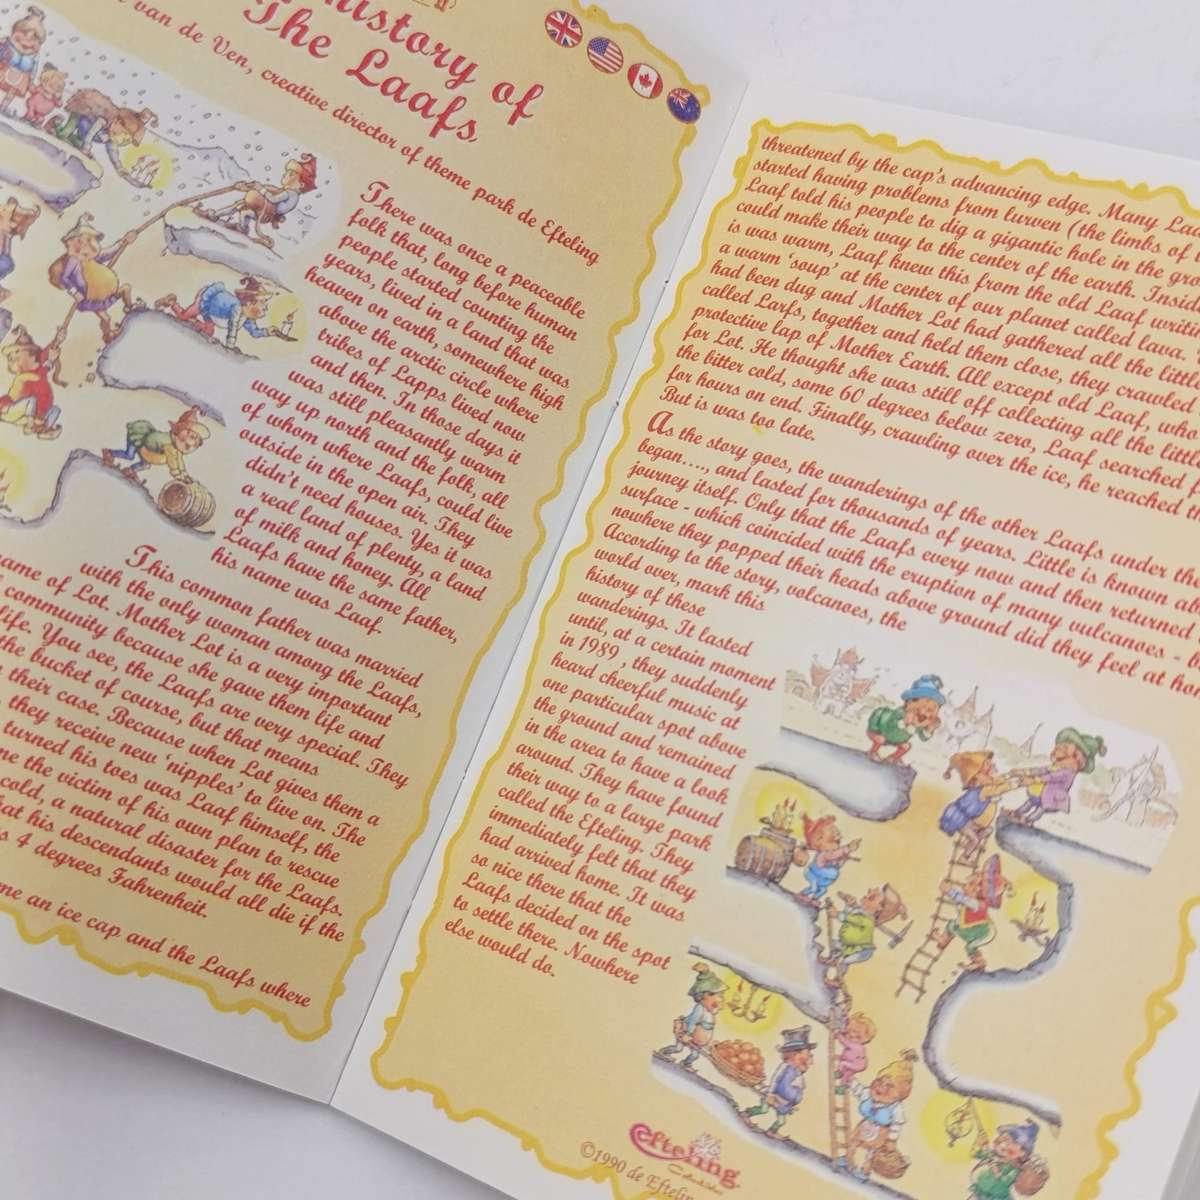 history of
The Laafs
van de Ven, creative director of theme park de Efteling
There was once a peaceable
folk that, long before human
people started counting the
years, lived in a land that was
heaven on earth, somewhere high
above the arctic circle where
tribes of Lapps lived now
and then. In those days it
was still pleasantly warm
way up north and the folk, all
of whom where Laafs, could live
outside in the open air. They
didn't need houses. Yes it was
a real land of plenty, a land
of milk and honey. All
Laafs have the same father,
his name was Laaf.
This common father was married
with the only woman among the Laafs,
name of Lot. Mother Lot is a very important
community because she gave them life and
life. You see, the Laafs are very special. They
the bucket of course, but that means
their case. Because when Lot gives them a
they receive new 'nipples' to live on. The
turned his toes was Laaf himself, the
the victim of his own plan to rescue
cold, a natural disaster for the Laafs.
that his descendants would all die if the
4 degrees Fahrenheit.
an ice cap and the Laafs where
threatened by the cap's advancing edge. Many
started having problems from turven (the limbs of
Laaf told his people to dig a gigantic hole in the
could make their way to the center of the earth. Inside
is was warm, Laaf knew this from the old Laaf
a warm 'soup' at the center of our planet called lava.
had been dug and Mother Lot had gathered all the
called Larfs, together and held them close, they crawled
protective lap of Mother Earth. All except old Laaf, who
for Lot. He thought she was still off collecting all the
the bitter cold, some 60 degrees below zero, Laaf searched
for hours on end. Finally, crawling over the ice, he reached
But is was too late.
As the story goes, the wanderings of the other Laafs under
began...., and lasted for thousands of years. Little is known
journey itself. Only that the Laafs every now and then returned
surface - which coincided with the eruption of many vulcanoes -
nowhere they popped their heads above ground did they feel at
According to the story, volcanoes, the
world over, mark this
history of these
wanderings. It lasted
until, at a certain moment
in 1989, they suddenly
heard cheerful music at
one particular spot above
the ground and remained
in the area to have a look
around. They have found
their way to a large park
called the Efteling. They
immediately felt that they
had arrived home. It was
so nice there that the
Laafs decided on the spot
to settle there. Nowhere
else would do.
efteling
©1990 de